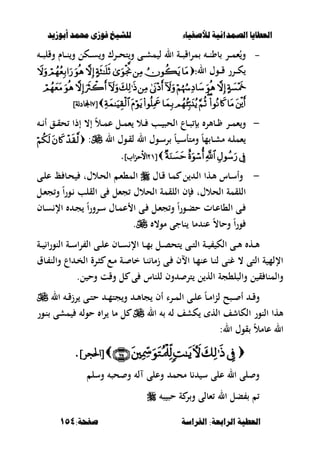 العطايا الصمدانية للأصفياء للشيخ فوزى محمد أبوزيد
- ويُعمر باطنه بمراقبة الله ليمشى ويتحرك ويسكن وينام وقلبه
يكرر قول الله: ﴿مَا يَكُونُ مِن نَّجْوَىٰ ثَلَٰثَةٍ إِلَّا هُوَ رَابِعُهُمْ وَلَا
خَمْسَةٍ إِلَّا هُوَ سَادِسُهُمْ وَلَا أَدْنَىٰ مِن ذَٰلِكَ وَلَا أَكْثَرَ إِلَّا هُوَ مَعَهُمْ
أَيْنَ مَا كَانُوا ثُمَّ يُنَبِّئُهُم بِمَا عَمِلُوا يَوْمَ الْقِيَٰمَةِ﴾ [٧المجادلة]
- ويعمر ظاهره بإتباع الحبيب فلا يعمل عملاً إلا إذا تحقق أنه
يعمله مشابهاً ومتأسياً برسول الله لقول الله: ﴿لَّقَدْ كَانَ لَكُمْ
فِى رَسُولِ اللَّهِ أُسْوَةٌ حَسَنَةٌ﴾ [٢١الأحزاب].
- وأساس هذا الدين كما قال ﷺ المطعم الحلال، فيحافظ على
اللقمة الحلال، فإن اللقمة الحلال تجعل فى القلب نوراً وتجعل
فى الطاعات حضوراً وتجعل فى الأعمال سروراً يجده الإنسان
فوراً وحالاً عندما يناجى مولاه.
هذه هى الكيفية التى يتحصل بها الإنسان على الفراسة النورانية
الإلهية التى لا غنى لنا عنها الآن فى زماننا خاصة مع كثرة الخداع والنفاق
والمنافقين والبلطجة الذين يترصدون للناس فى كل وقت وحين.
وقد أصبح لزاماً على المرء أن يجاهد ويجتهد حتى يرزقه الله
هذا النور الكاشف الذى يكشف له به الله كل ما يراه حوله فيمشى بنور
الله عاملاً بقول الله:
﴿إِنَّ فِى ذَٰلِكَ لَآيَٰتٍ لِّلْمُتَوَسِّمِينَ ۝٧٥﴾ [الحجر].
وصلى الله على سيدنا محمد وعلى آله وصحبه وسلم
تم بفضل الله تعالى وبركة حبيبه ﷺ
العطية الرابعة: الفراسة صفحة:١٥٤